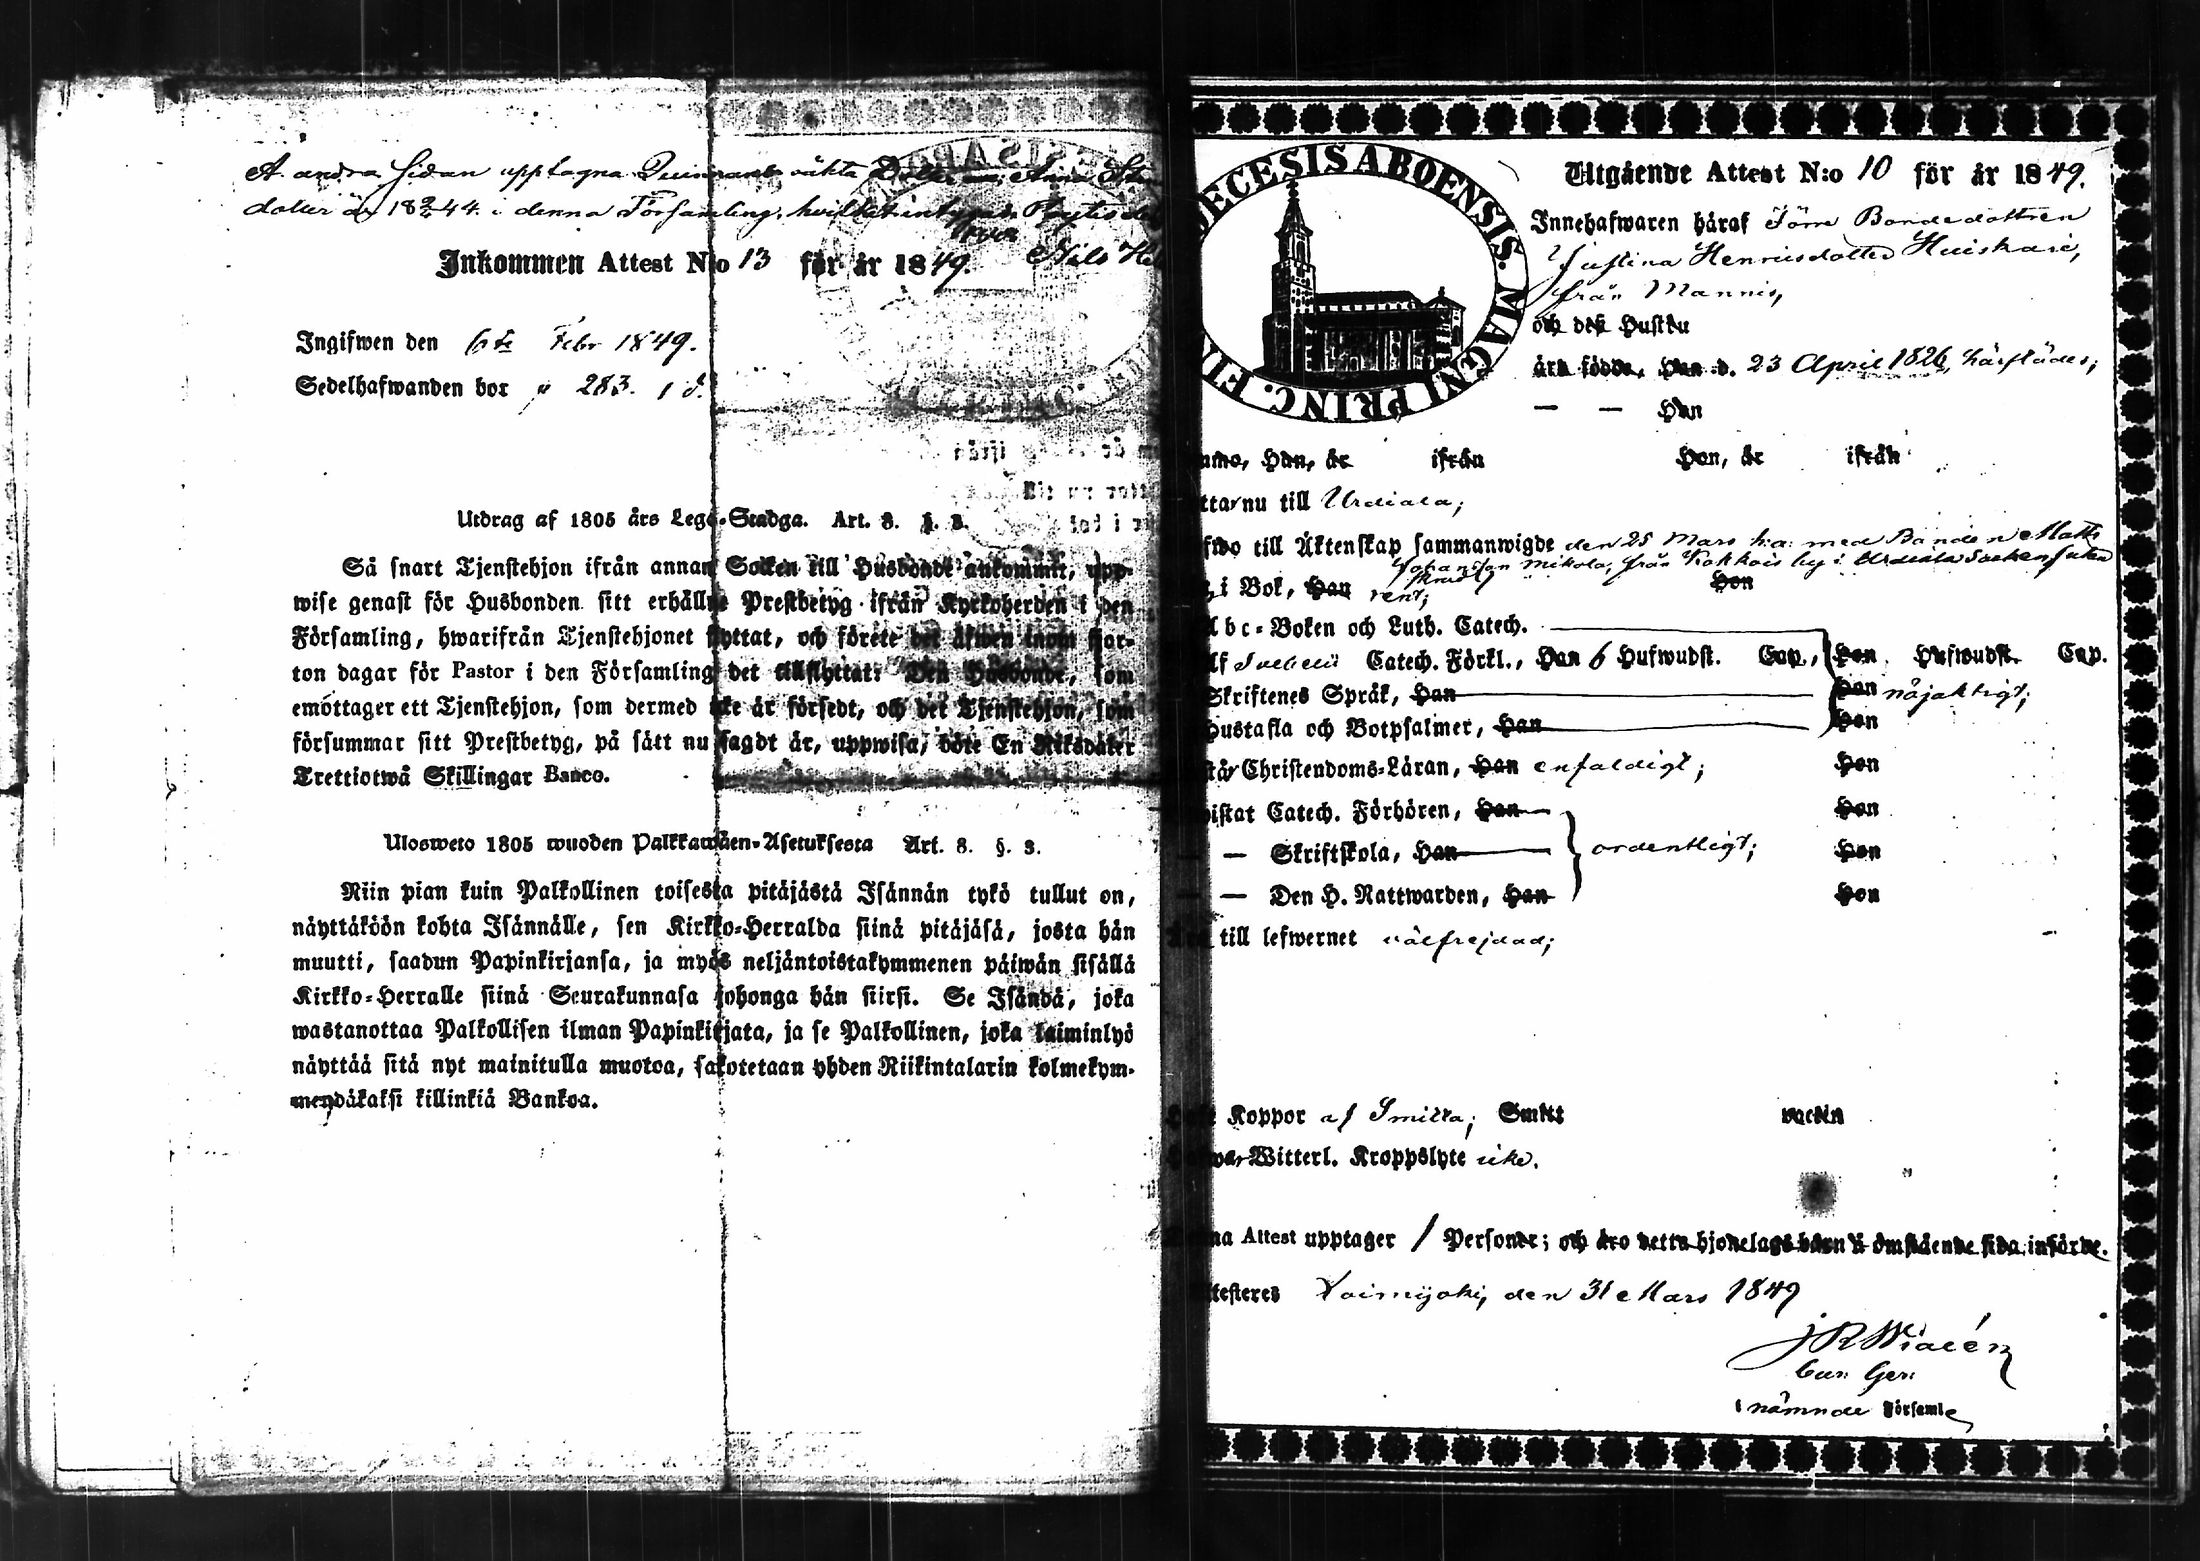 A andra Sidan upptagna Quinnans äkta Dotter Anna
dotter är 18 2/2 44. i denna Församling, hvilket intygas. Pöytis
Nils
Inkommen Attest N:o 13 för år 1849.
Ingifwen den 6te Febr 1849.
Sedelhafwanden bor p 283.
Utdrag af 1805 års Lego-Stadga. Art. 8. §. 3.
Så snart Tjenstehjon ifrån annan Socken till Husbonde ankommit, upp-
wise genast för Husbonden sitt erhållne Prestbetyg ifrån Kyrkoherden i den
Församling, hwarifrån Tjenstehjonet flyttat, och förete det äfwen inom fjor-
ton dagar för Pastor i den Församling det tillflyttat: Den Husbonde, som
emottager ett Tjenstehjon, som dermed icke är försedt, och det Tjenstehjon, som
försummar sitt Prestbetyg, på sätt nu sagdt är, uppwisa, böte En Riksdaler
Trettiotwå Skillingar Banco.
Ulosweto 1805 wuoden Palkkawäen-Asetuksesta Art. 8. §. 3.
Niin pian kuin Palkollinen toisesta pitäjästä Isännän tykö tullut on,
näyttäköön kohta Isännälle, sen Kirkko-Herralda siinä pitäjäsä, josta hän
muutti, saadun Papinkirjansa, ja myös neljäntoistakymmenen päiwän sisällä
Kirkko-Herralle siinä Seurakunnasa johonga hän siirsi. Se Isändä, joka
wastanottaa Palkollisen ilman Papinkirjata, ja se Palkollinen, joka laiminlyö
näyttää sitä nyt mainitulla muotoa, sakotetaan yhden Riikintalarin kolmekym-
mendäkaksi killinkiä Bankoa.
DECESIS ABOENSIS. MAGNI PRINC. FI
Utgående Attest N:o 10 för år 1849.
Innehafwaren häraf Förre Bondedottren
Justina Henricsdotter Huiskari,
från Mannis,
och dess Hustru
äro födde, Han d. 23 April 1826, härstädes;
— — Hon
Han, är ifrån Hon, är ifrån
nu till Urdiala;
till Äktenskap sammanwigde den 25 Mars h.a. med Bonden Matts
Johansson Mikola, från Kokkois by i Urdiala Socken
i Bok, Han rent; Hon
Abc-Boken och Luth. Catech.
Svebelii Catech. Förkl., Han 6 Hufwudst. Cap., Hon Hufwudst. Cap.
Skriftenes Språk, Han Hon nöjaktigt;
Hustafla och Botpsalmer, Han Hon
Christendoms-Läran, Han enfaldigt; Hon
Catech. Förhören, Han Hon
— Skriftskola, Han ordentligt; Hon
— Den H. Nattwarden, Han Hon
till lefwernet välfrejdad;
Koppor af Smitta; Smitt vaccin
Witterl. Kroppslyte icke.
Attest upptager 1 Personer; och äro detta hjonelags barn å omstående sida införde.
Loimijoki, den 31 Mars 1849
nämnde Församl